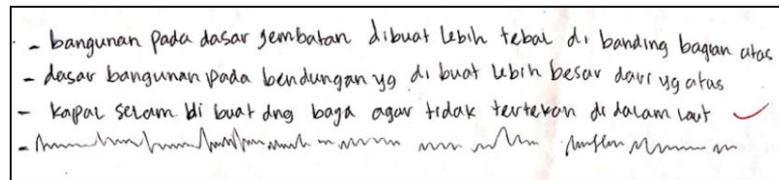 - bangunan pada dasar jembatan dibuat lebih tebal di banding bagian atas
- dasar bangunan pada bendungan yg di buat lebih besar dari yg atas
- kapal selam di buat dng baja agar tidak tertekan di dalam laut
-